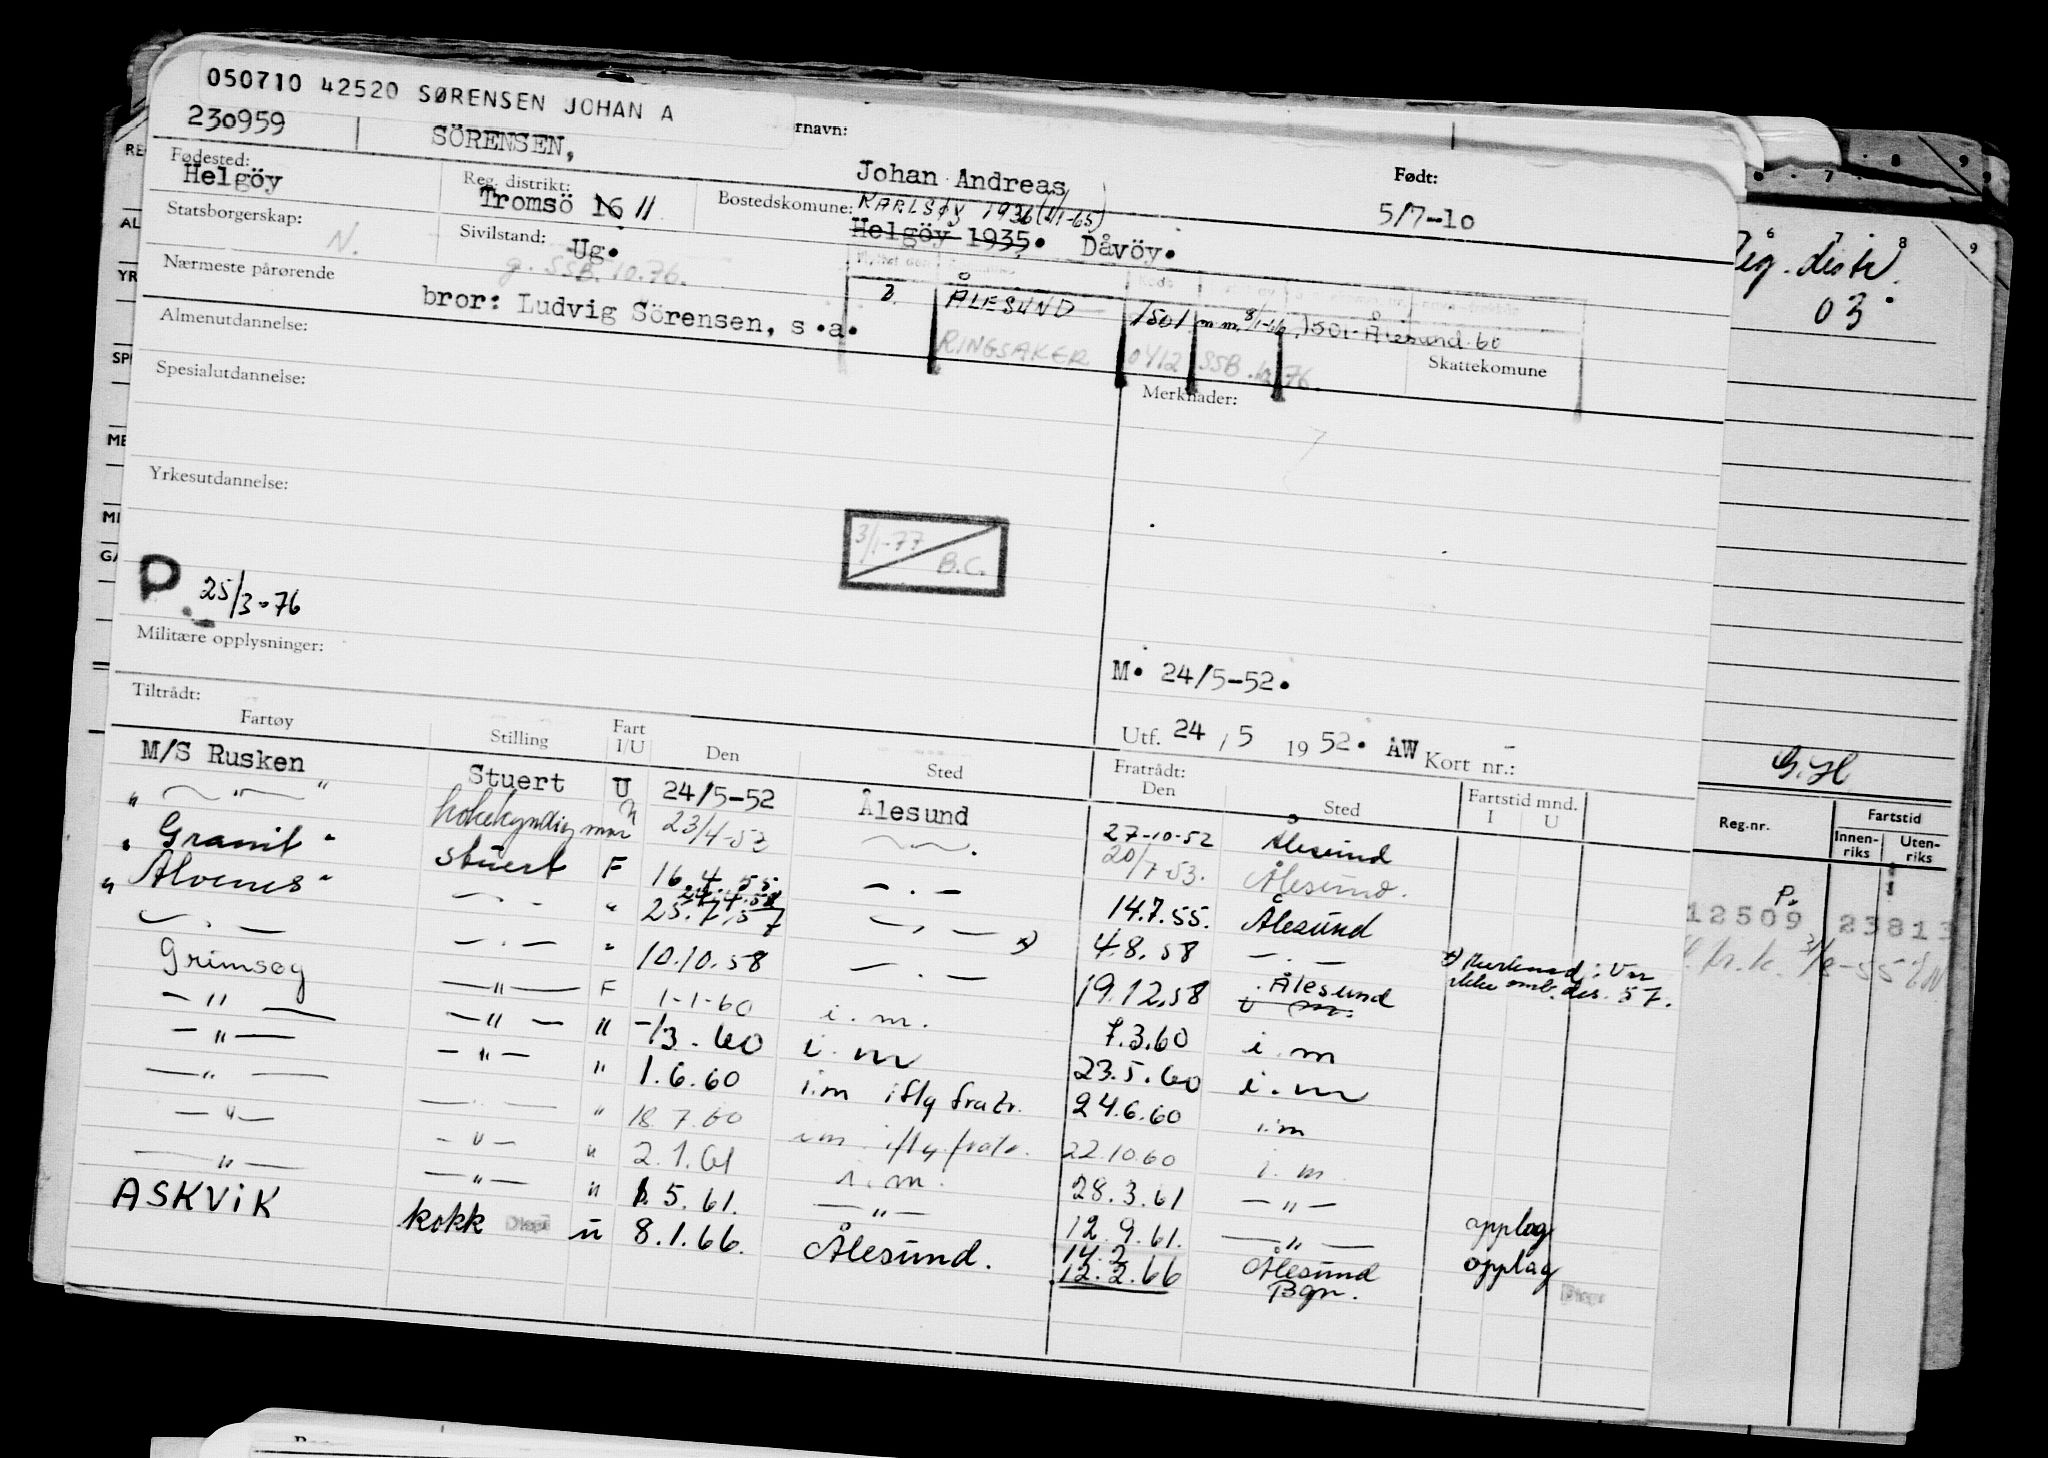 050710 42520 SØRENSEN JOHAN A
230959 SÖRENSEN, rnavn: Johan Andreas Født: 5/7-10
Fødested: Helgöy Reg. distrikt: Tromsö 16 11 Bostedskommune: KARLSØY 1936 (1/1-65)
Helgöy 1935. Dåvöy.
Statsborgerskap: N. Sivilstand: Ug.
g. SSB. 10.76.
Nærmeste pårørende bror: Ludvig Sörensen, s.a.
2. ÅLESUND 1501 m.m. 8/1-66, 1501 Ålesund 60
RINGSAKER 0412 SSB 76. Skattekomune
Almenutdannelse:
Spesialutdannelse: Merknader:
Yrkesutdannelse:
3/1-77 B.C.
P. 25/3-76
Militære opplysninger: M. 24/5-52.
Utf. 24 / 5 1952. AW Kort nr.:
Tiltrådt: Fratrådt:
Fartøy Stilling Fart I/U Den Sted Den Sted Fartstid mnd. I U
M/S Rusken Stuert U 24/5-52 Ålesund 27-10-52 Ålesund
" — " — " 23/4-53 — " — 20/7 53. Ålesund.
" Granit " stuert F 16.4.55 — . — 14.7.55. Ålesund
" Alvenes " — . . " 24.4.58 25.7.57 — . — x) 4.8.58 — . —
— . — — . — " 10.10.58 — . — 19.12.58 Ålesund
x) Merknad: Var ikke omb. des. 57.
Grimsøy — " — F 1-1-60 i.m. 7.3.60 i.m
— " — — " — " -/3.60 i.m 23.5.60 i.m
— " — — " — " 1.6.60 i.m iflg fratr. 24.6.60 i.m
— " — — . — " 18.7.60 i.m. iflg fratr. 22.10.60 i.m
— " — — " — " 2.1.61 i.m. 28.3.61 — " —
— " — — " — " 1.5.61. — " — 12.9.61. — " — opplag
ASKVIK kokk u 8.1.66. Ålesund. 14.2 12.2.66 Ålesund Bgn. opplag
Reg. distr. 03
6 7 8 9
G.H.
Reg.nr. Fartstid
Innen-riks Uten-riks
P.
12509 23813
RE
AL
YR
SP
ME
MI
GA